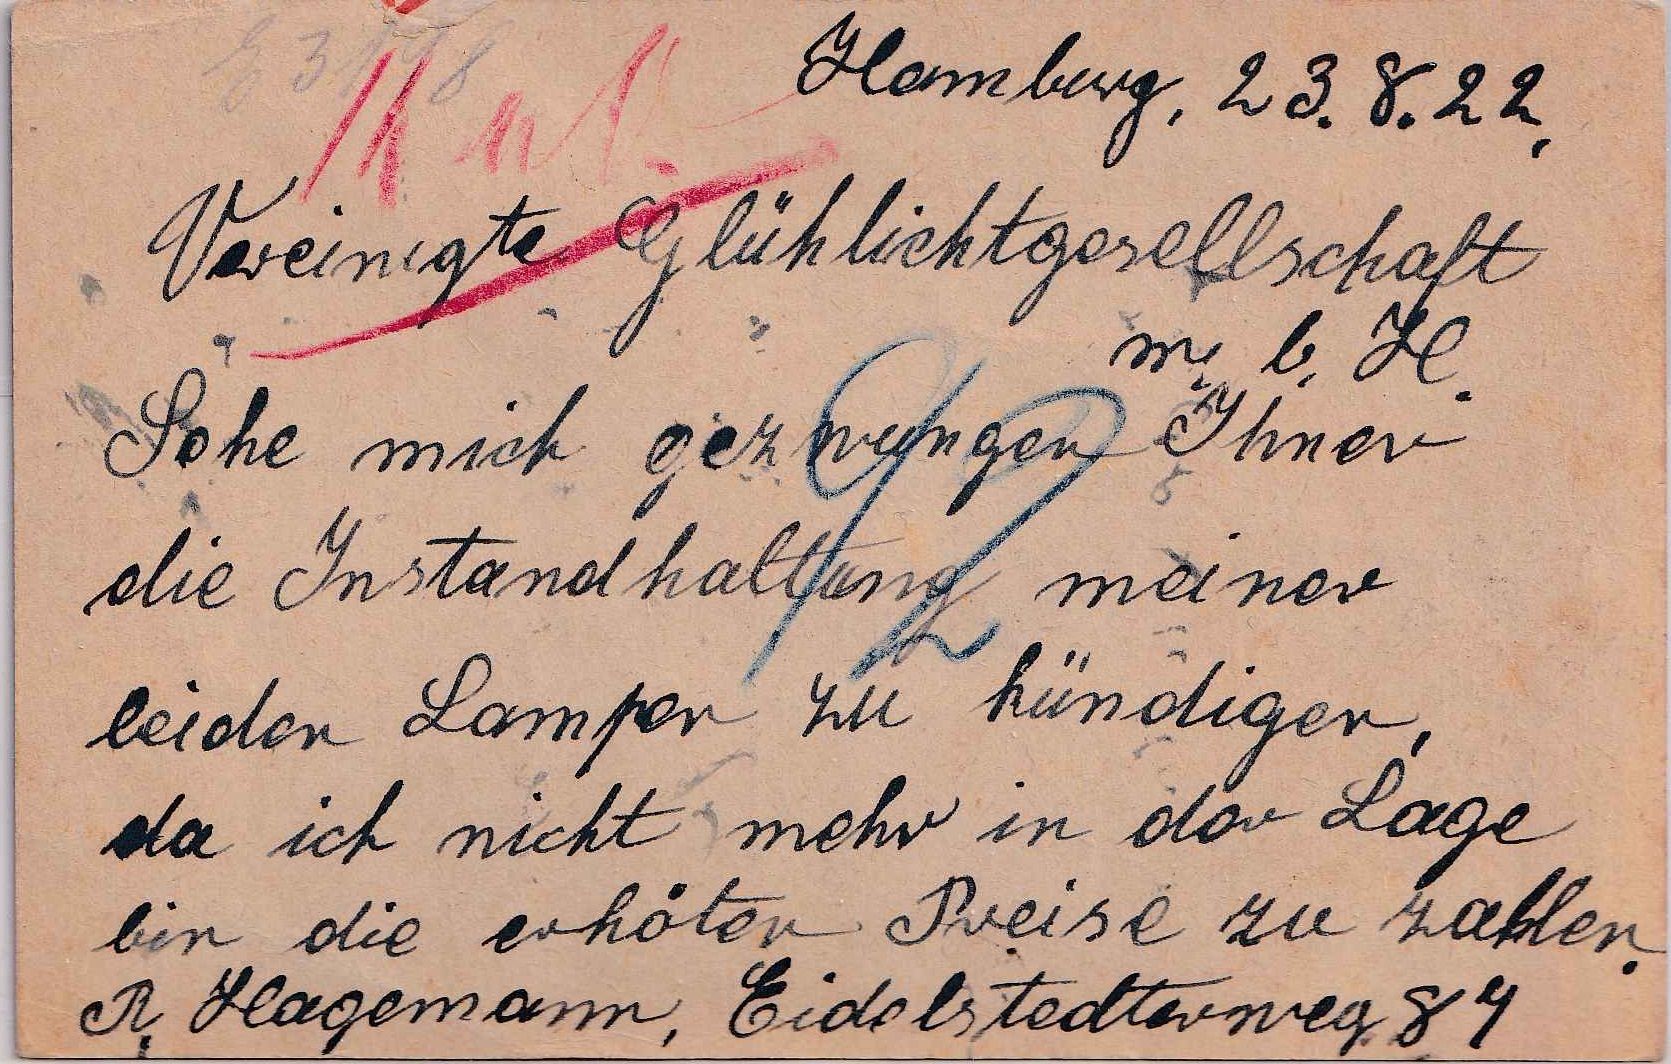 Hamburg, 23.8.22.
Vereinigte Glühlichtgesellschaft
m. b. H.
Sehe mich gezwungen Ihnen
die Instandhaltung meiner
beiden Lampen zu kündigen,
da ich nicht mehr in der Lage
bin die erhöten Preise zu zahlen.
R. Hagemann, Eidelstedterweg 84
92